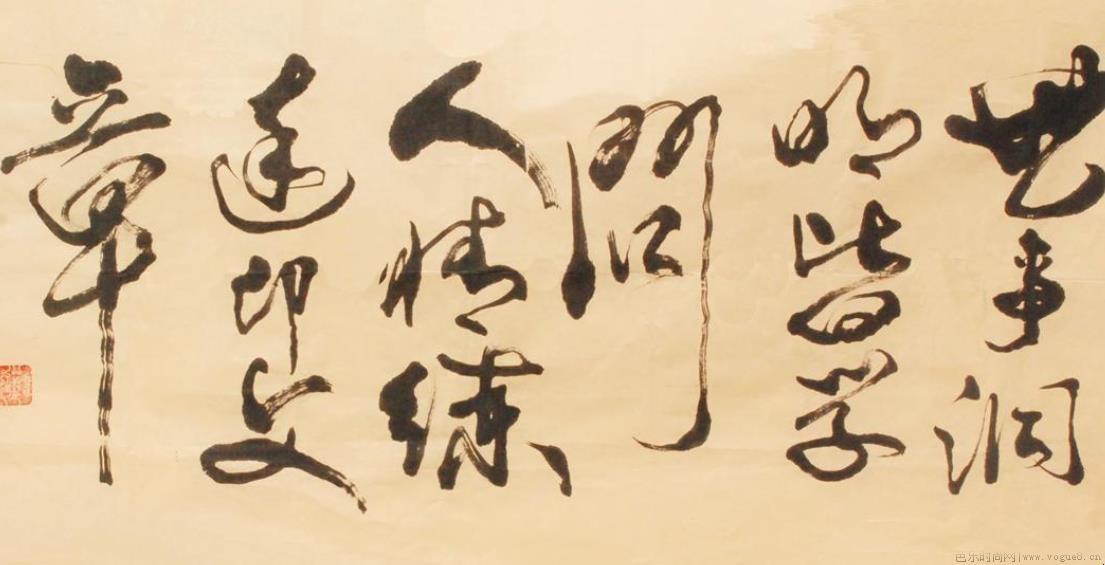 世事洞
明皆学
問
人情練
達即文
章
乐时尚网|www.vogue8.cn